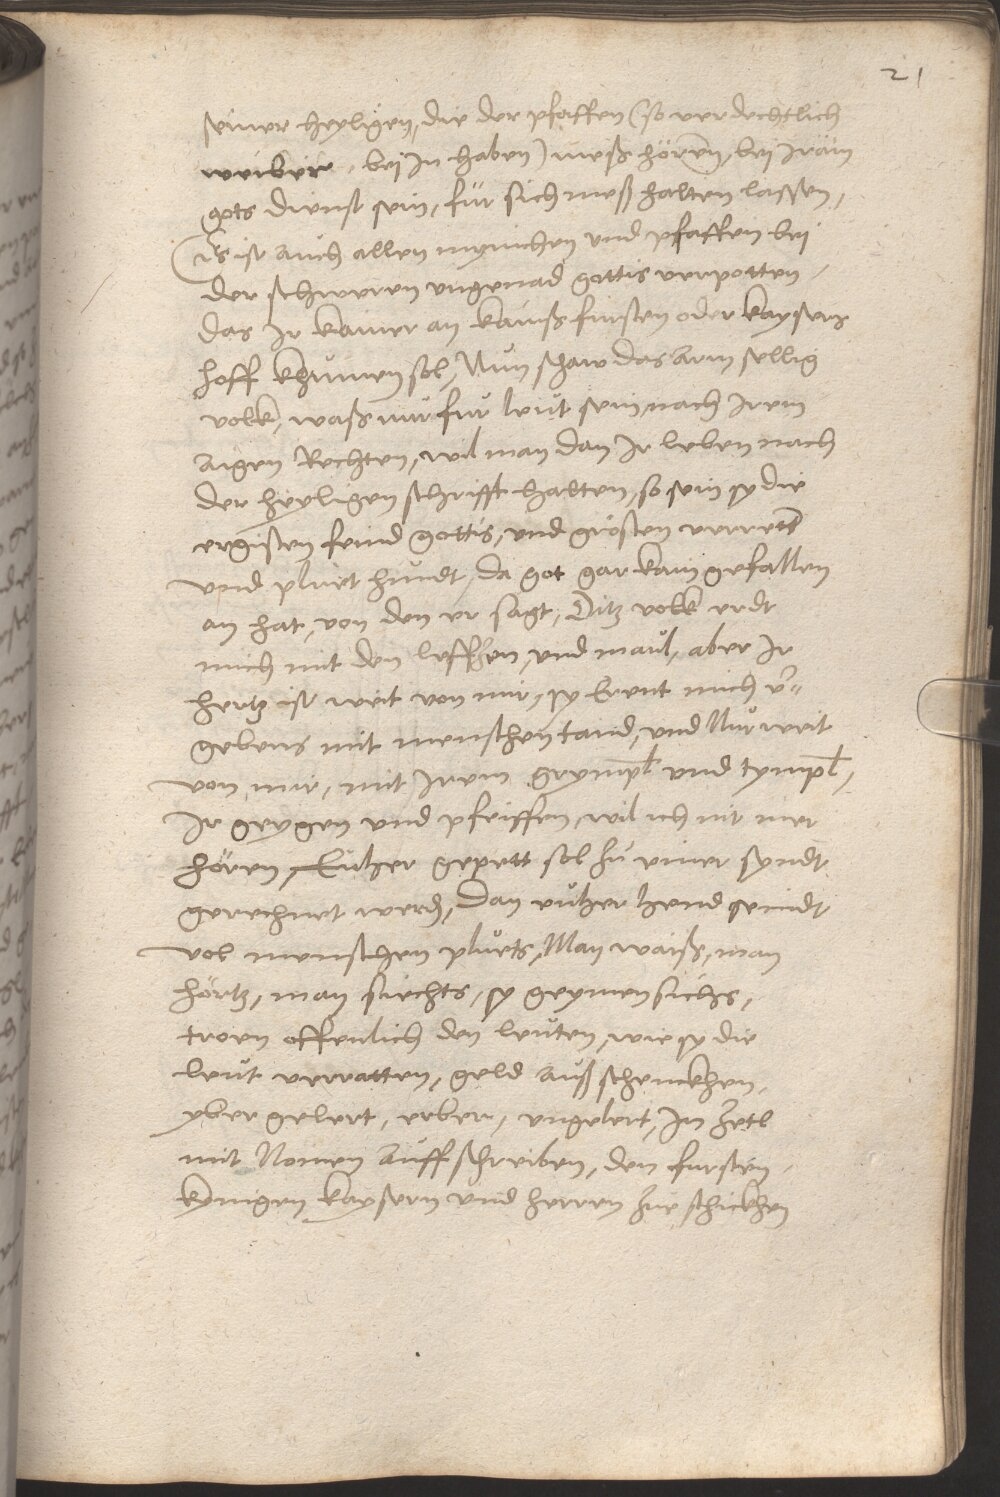 21
seiner heyligen, die der pfaffen (so verdechtlich
weiber, bei In haben) meß hören, bei Iräm
gots dienst sein, für sich meß halten lassen,
Es ist auch allen mynichen und pfaffen bei
der schweren ungenad gottis verpotten
das Ir kainer an kainß fursten oder kaysers
hoff khumen sol, Nun schaw das arm sellig
volk, waß nur fur leut sein nach Irem
aigen Rechten, wil man dan Ir leben nach
der heyligen schrifft halten, so sein sy die
ergisten feind gottis, und grösten verrett
und pluet hundt, da got gar kain gefallen
an hat, von den er sagt, Ditz volk erdt
mich mit den leffzen, und maul, aber Ir
hertz ist weit von mir, sy Erent mich v̈
gebens mit menschen tand, und Nur weit
von mir, mit Irem grympl und tympl,
Ir geygen und pfeiffen, wil ich nit mer
hören, Eucher gepett sol zu einer syndt
gerechnet werd, Dan eucher hend seindt
vol menschen pluets, Man waiß, man
hörtz, man siechts, sy geymen sichs,
troen offenlich den leuten, wie sy die
leut verratten, geld auß schenckhen,
yber gelert, erber, ungelert, In zetl
mit Nomen auff schreiben, den fursten
kynigen kaysern und herren zue schickhen